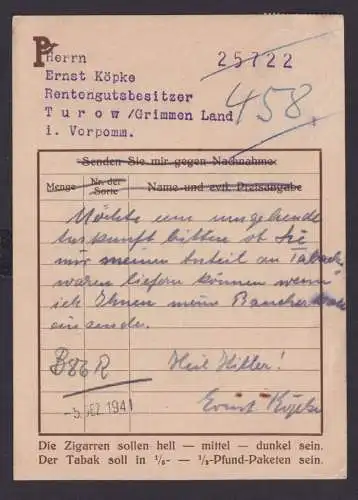 Herrn
25722
Ernst Köpke
Rentengutsbesitzer
458
Turow/Grimmen Land
i. Vorpomm.
Senden Sie mir gegen Nachnahme
Menge
Nr. der Sorte
Name und evtl. Preisangabe
Möchte um umgehende
Auskunft bitten ob Sie
mir meinen Anteil an Tabak-
waren liefern können wenn
ich Ihnen meine
einsende.
B86R
Heil Hitler!
-5. DEZ. 1941
Ernst Köpke
Die Zigarren sollen hell — mittel — dunkel sein.
Der Tabak soll in ¹/₈- — ¹/₂-Pfund-Paketen sein.